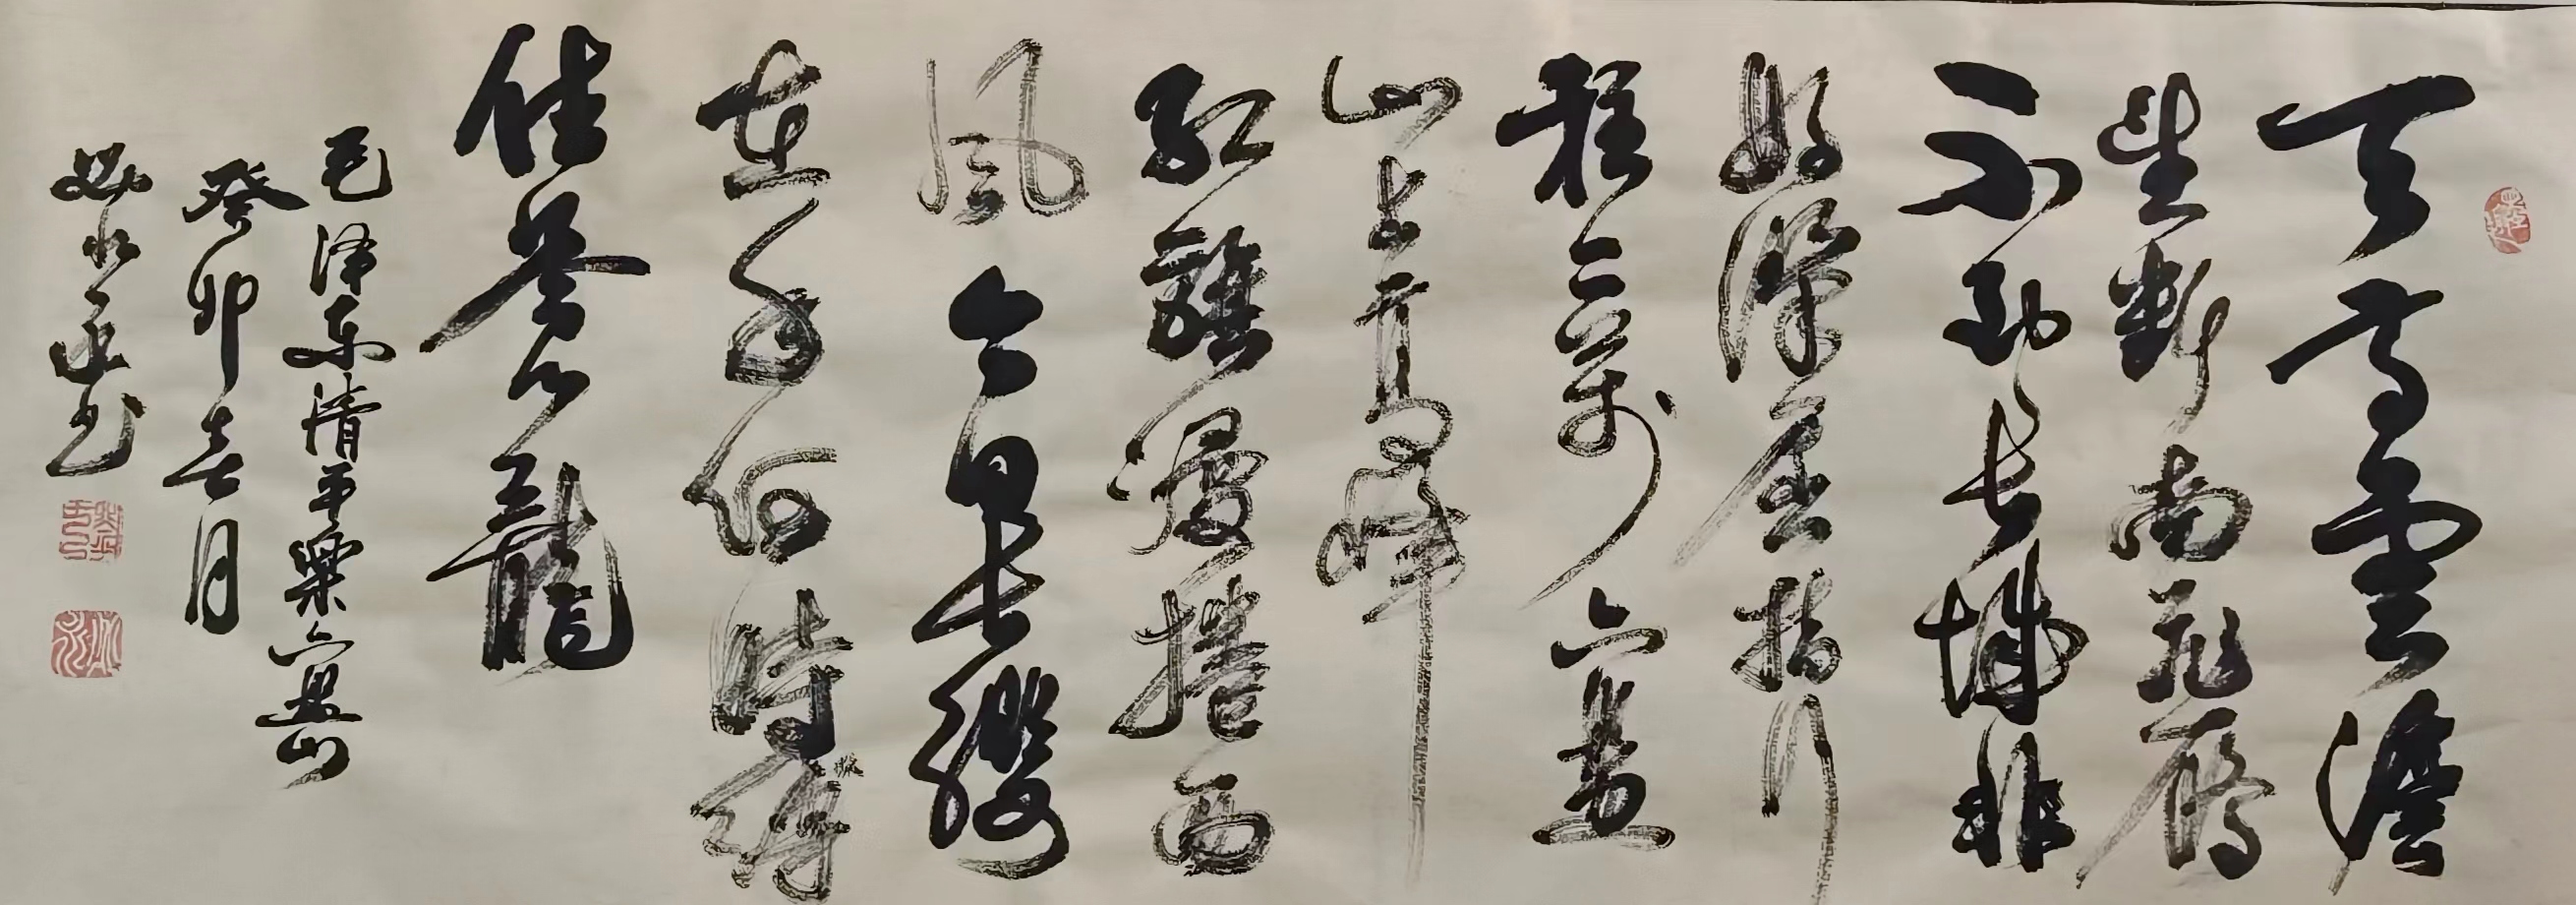 天高雲澹
望斷南飛雁
不到長城非
好漢屈指行
程二萬六盤
山上高峰
紅旗漫捲西
風今日長纓
在手何時縛
住蒼龍
毛泽东清平樂六盤山
癸卯春月
书